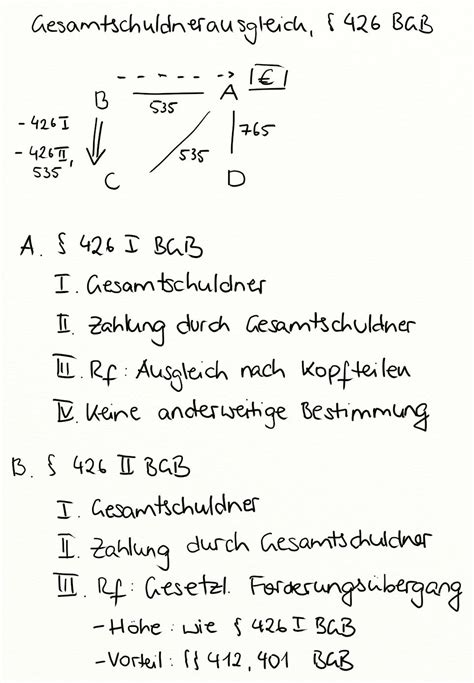 Gesamtschuldnerausgleich, § 426 BGB
B - - - - - -> A |€|
535
- 426 I
- 426 II,
535
535
765
C D
A. § 426 I BGB
I. Gesamtschuldner
II. Zahlung durch Gesamtschuldner
III. Rf: Ausgleich nach Kopfteilen
IV. Keine anderweitige Bestimmung
B. § 426 II BGB
I. Gesamtschuldner
II. Zahlung durch Gesamtschuldner
III. Rf: Gesetzl. Forderungsübergang
- Höhe: wie § 426 I BGB
- Vorteil: §§ 412, 401 BGB